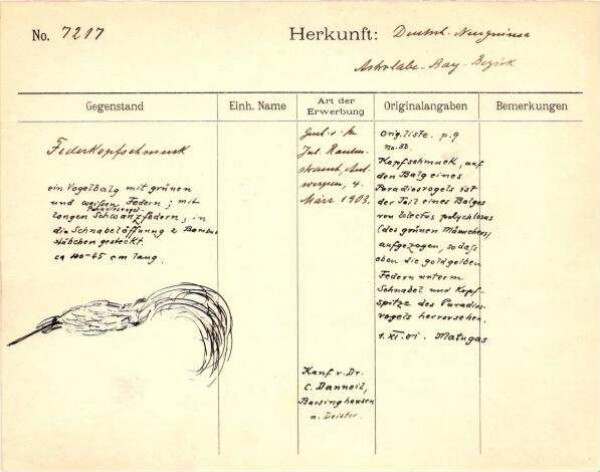 No. 7217
Herkunft: Deutsch-Neuguinea
Astrolabe-Bay-Bezirk
Gegenstand
Einh. Name
Art der Erwerbung
Originalangaben
Bemerkungen
Federkopfschmuck
ein Vogelbalg mit grünen
und weißen Federn; mit
langen Schwanzfedern; in
die Schnabelöffnung 2 Bambus
stäbchen gesteckt.
ca 40-45 cm lang.
Jul. Rauten-
strauch, Ant-
werpen, 4.
März 1903.
Kauf v. Dr.
C. Danneil,
Barsinghausen
a. Deister.
Orig. liste. p. 9
No. 88
Kopfschmuck, auf
den Balg eines
Paradiesvogels ist
der Teil eines Balges
von Electus polychlorus
(des grünen Männchens)
aufgezogen, so daß
oben die goldgelben
Federn unterm
Schnabel und Kopf-
spitze des Paradies-
vogels hervorsehen.
1. XI. 01. Matugas